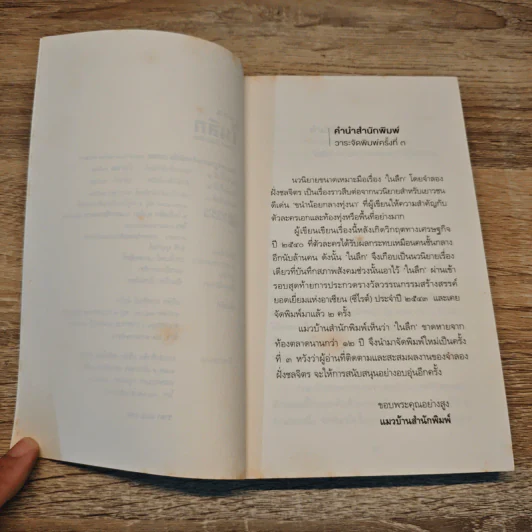 คำนำสำนักพิมพ์
วาระจัดพิมพ์ครั้งที่ ๓
นวนิยายขนาดเหมาะมือเรื่อง 'ในลึก' โดยจำลอง
ฝั่งชลจิตร เป็นเรื่องราวสืบต่อจากนวนิยายสำหรับเยาวชน
ดีเด่น 'ขนำน้อยกลางทุ่งนา' ที่ผู้เขียนให้ความสำคัญกับ
ตัวละครเอกและท้องทุ่งหรือพื้นที่อย่างมาก
ผู้เขียนเขียนเรื่องนี้หลังเกิดวิกฤตทางเศรษฐกิจ
ปี ๒๕๔๐ ที่ตัวละครได้รับผลกระทบเหมือนคนชั้นกลาง
อีกนับล้านคน ดังนั้น 'ในลึก' จึงเกือบเป็นนวนิยายเรื่อง
เดียวที่บันทึกสภาพสังคมช่วงนั้นเอาไว้ 'ในลึก' ผ่านเข้า
รอบสุดท้ายการประกวดรางวัลวรรณกรรมสร้างสรรค์
ยอดเยี่ยมแห่งอาเซียน (ซีไรต์) ประจำปี ๒๕๔๓ และเคย
จัดพิมพ์มาแล้ว ๒ ครั้ง
แมวบ้านสำนักพิมพ์เห็นว่า 'ในลึก' ขาดหายจาก
ท้องตลาดนานกว่า ๑๒ ปี จึงนำมาจัดพิมพ์ใหม่เป็นครั้ง
ที่ ๓ หวังว่าผู้อ่านที่ติดตามและสะสมผลงานของจำลอง
ฝั่งชลจิตร จะให้การสนับสนุนอย่างอบอุ่นอีกครั้ง
ขอบพระคุณอย่างสูง
แมวบ้านสำนักพิมพ์